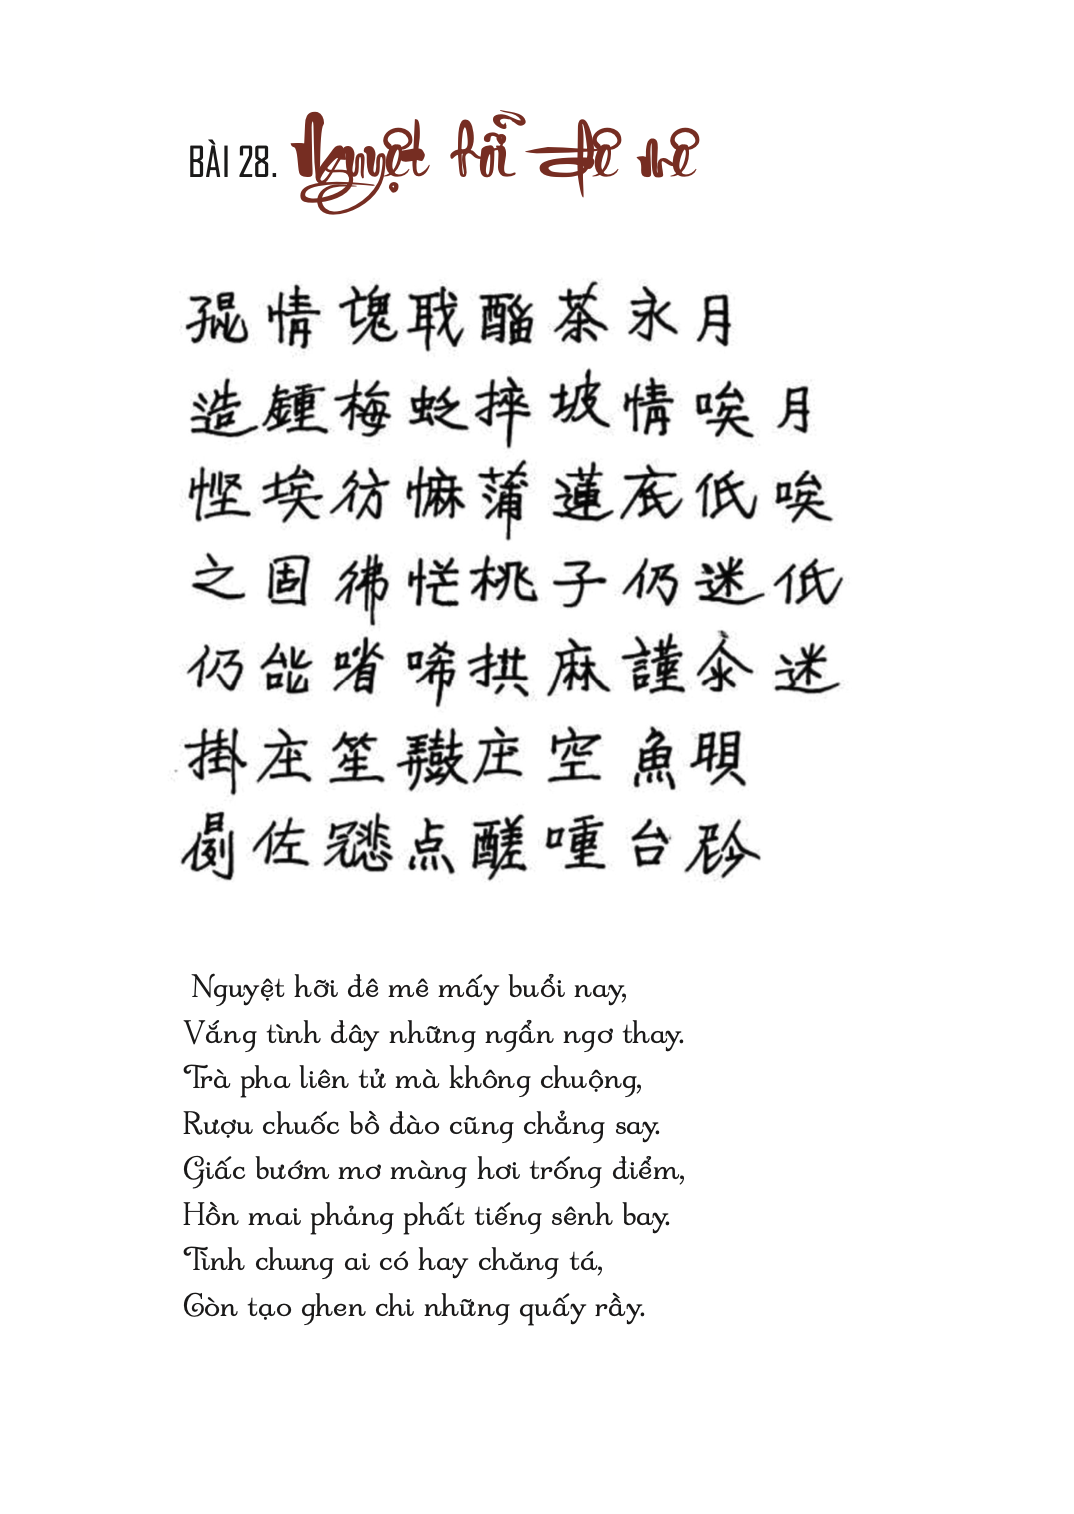 BÀI 28. Nguyệt hỡi đê mê
月唉低迷
月唉低迷氽
永情底仍謹魚台
茶坡蓮子麻空㖡
捽蒲桃拱庄醝
恾唏点
梅彷彿㗂笙
情鍾埃固咍庄佐
造慳之仍掛
Nguyệt hỡi đê mê mấy buổi nay,
Vắng tình đây những ngẩn ngơ thay.
Trà pha liên tử mà không chuộng,
Rượu chuốc bồ đào cũng chẳng say.
Giấc bướm mơ màng hơi trống điểm,
Hồn mai phảng phất tiếng sênh bay.
Tình chung ai có hay chăng tá,
Còn tạo ghen chi những quấy rầy.